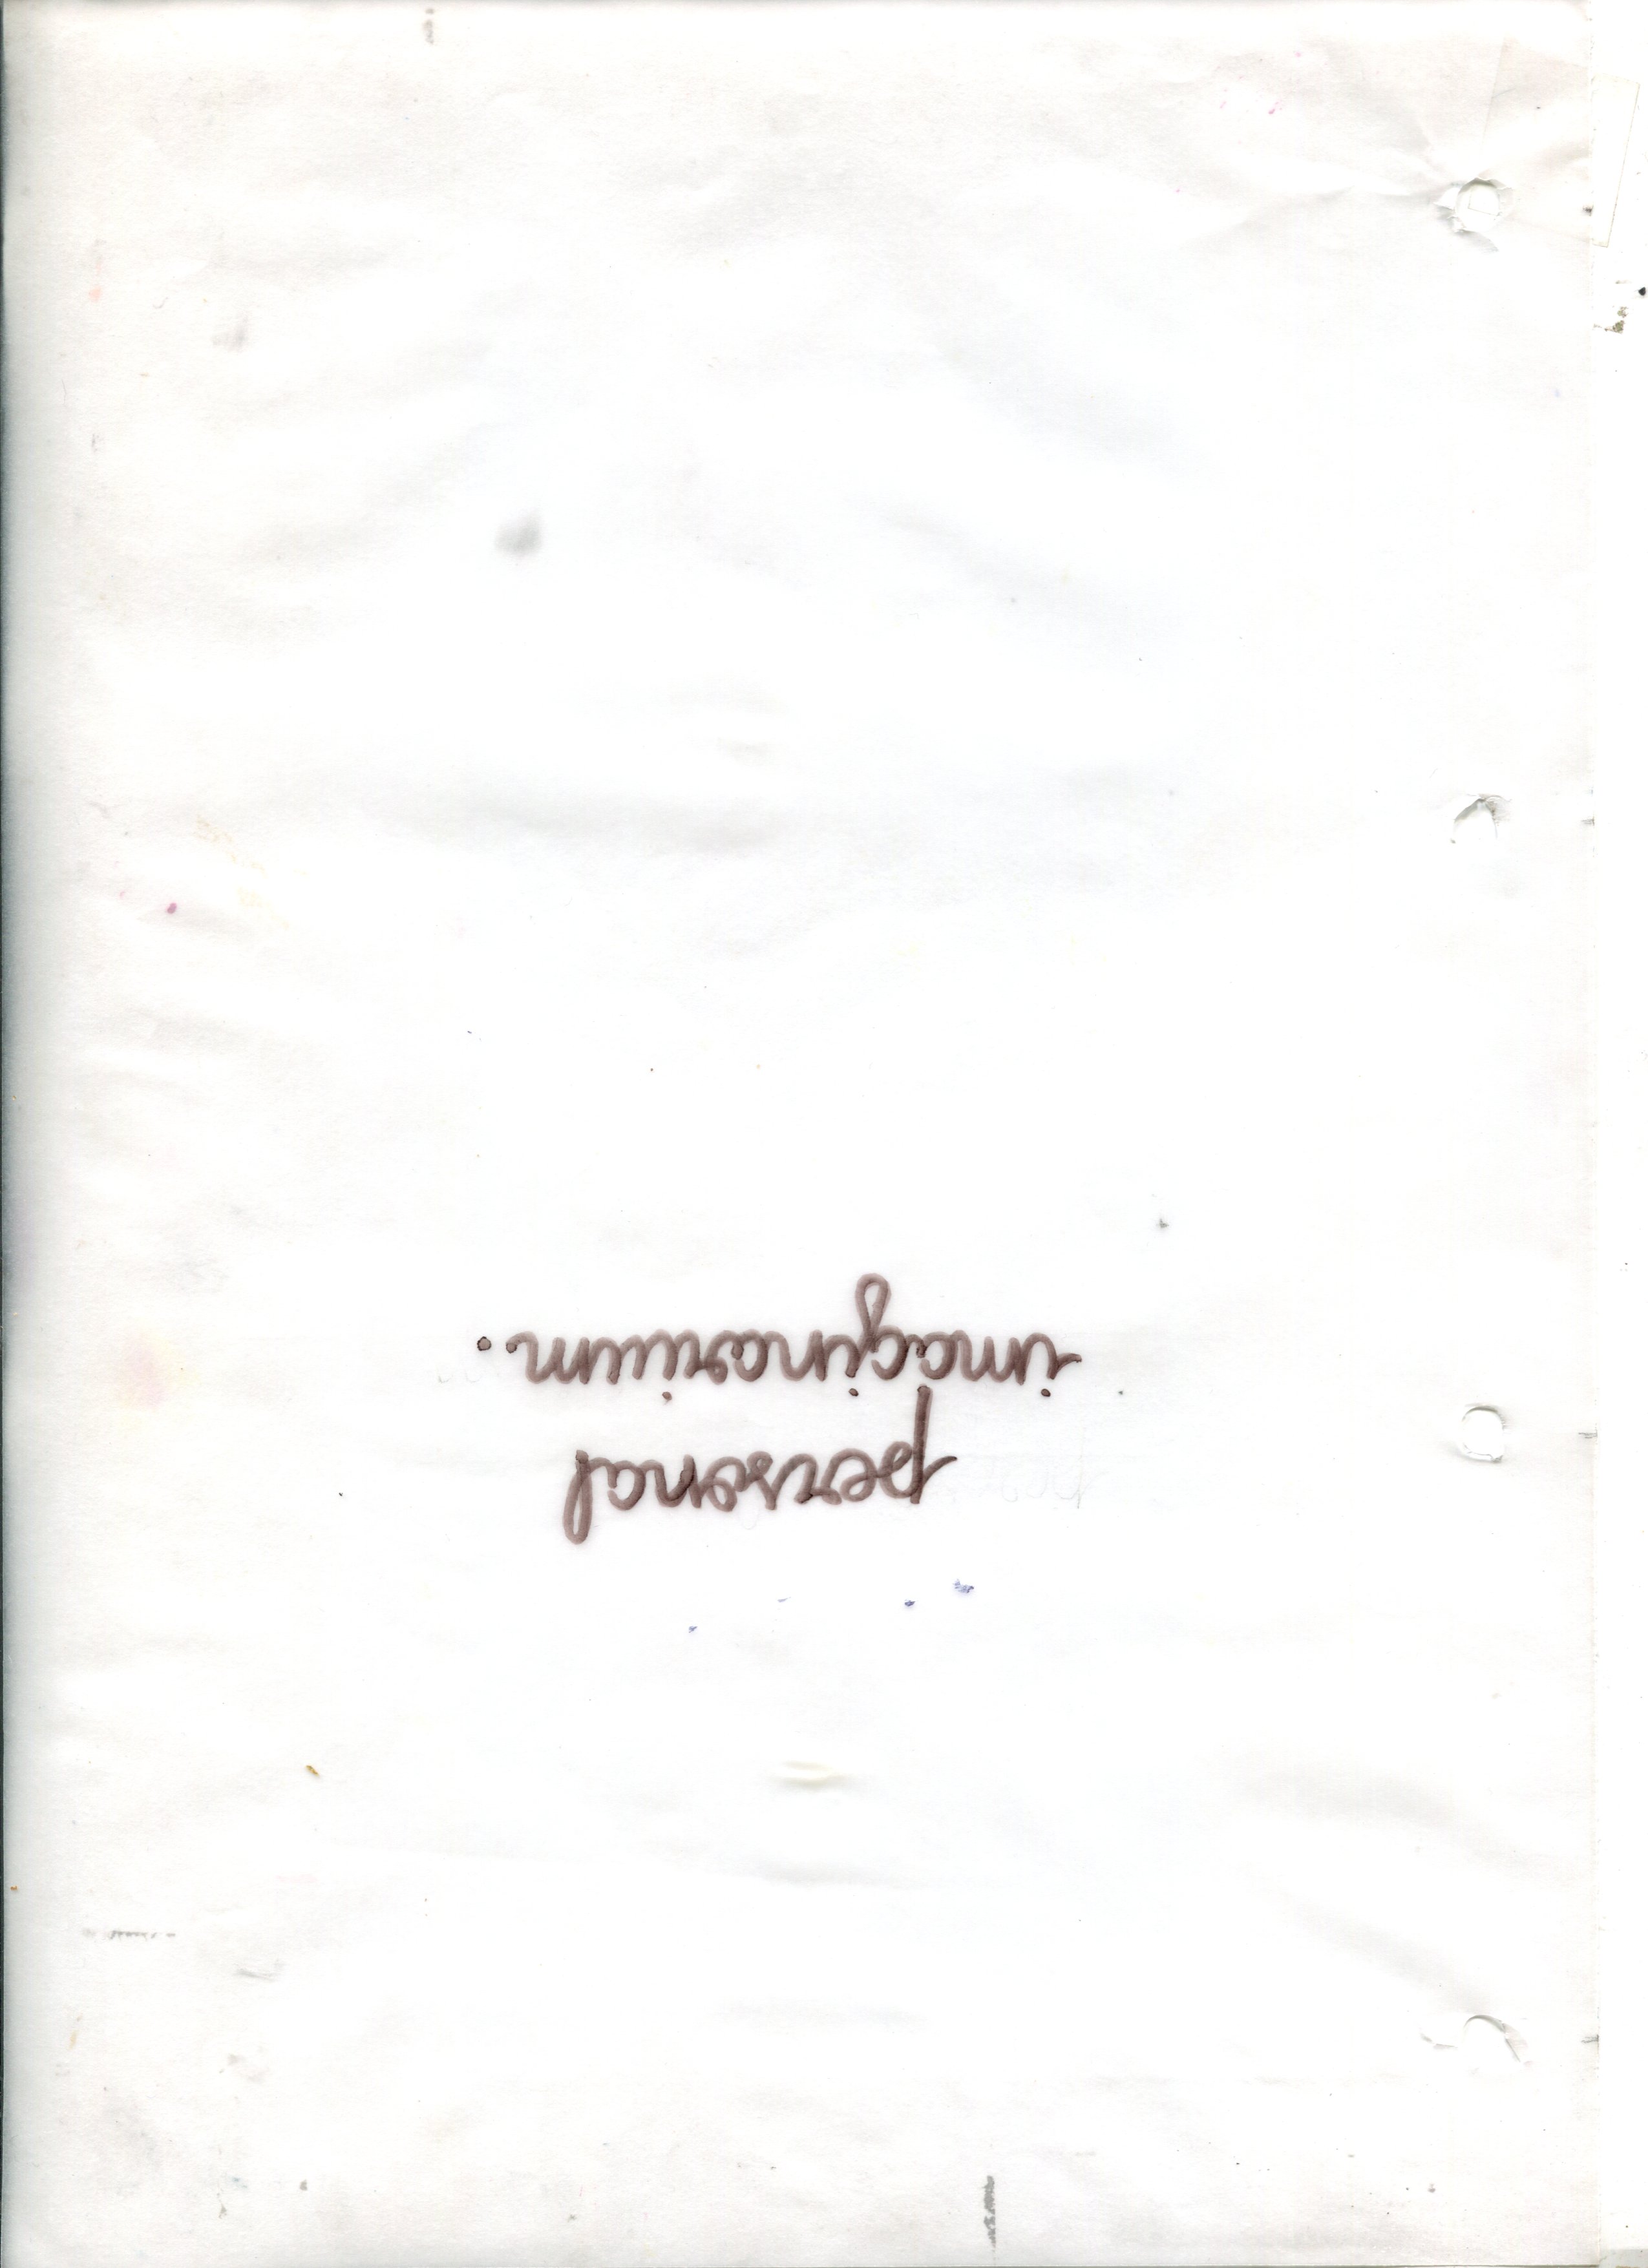 personal
imaginarium.